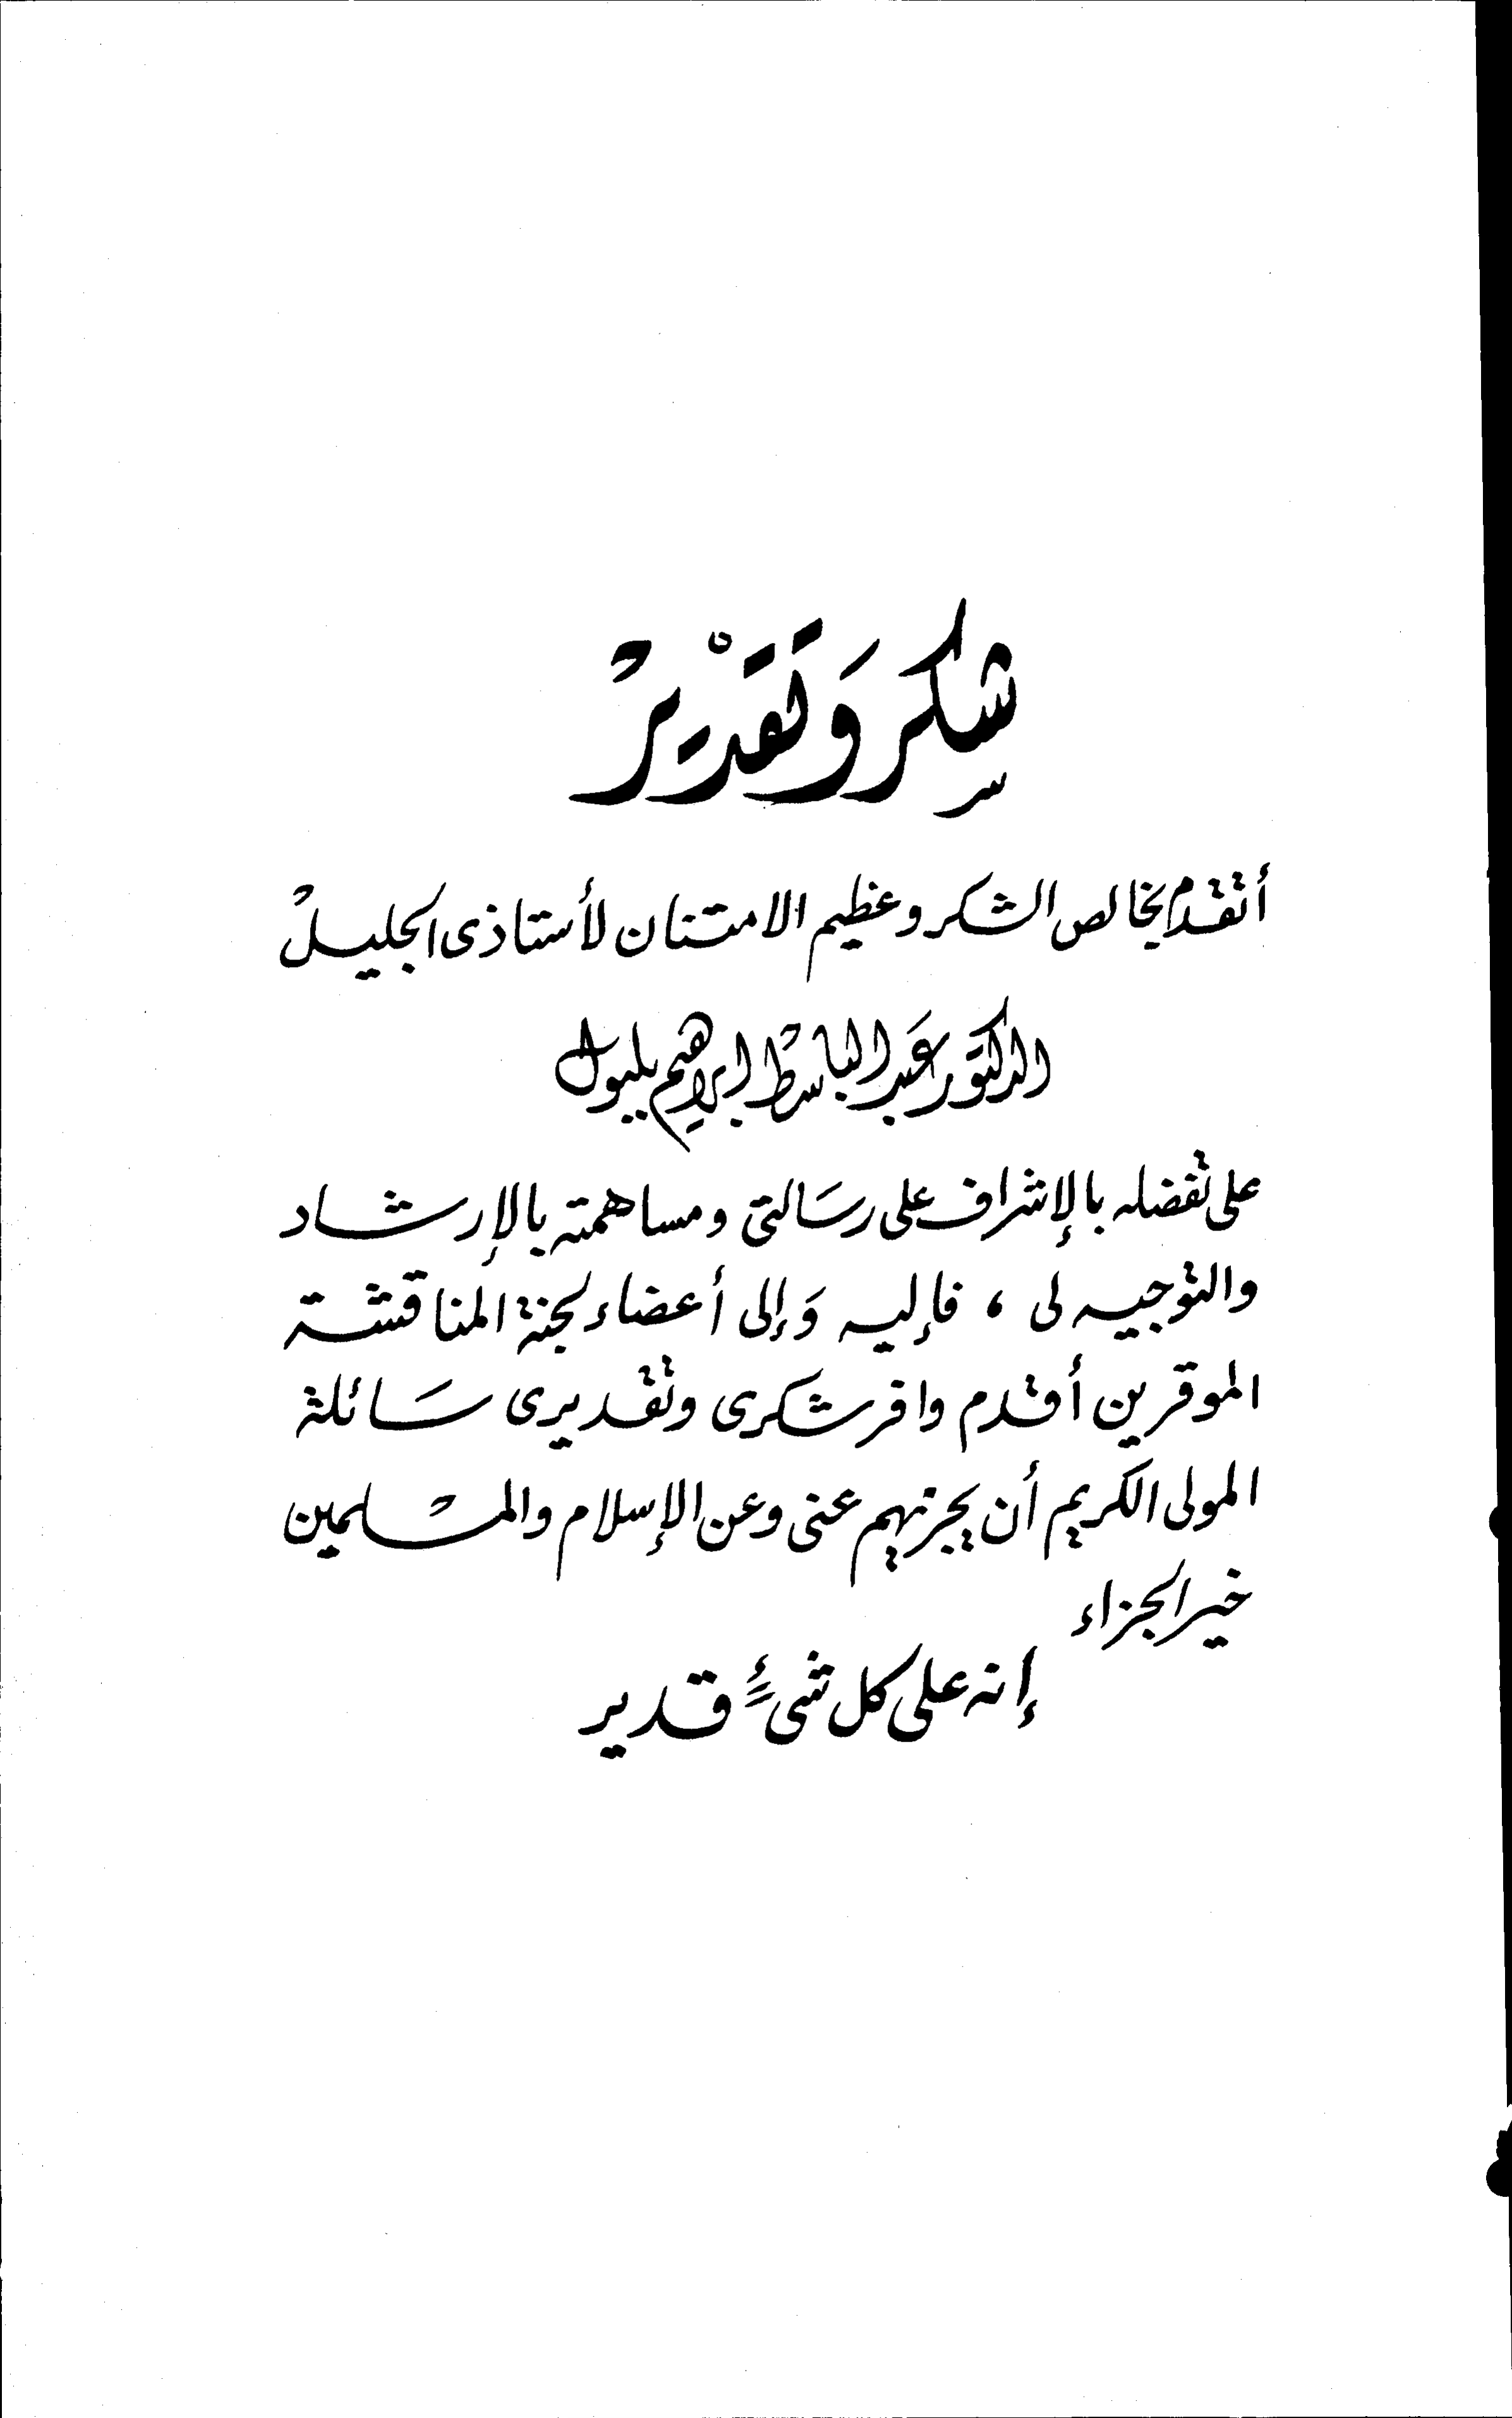 شكر وَتَقْدير
أتقدم بخالص الشكر وعظيم الامتنان لأستاذى الجليل
الدكتور عَبد الباسط ابراهيم بلبول
على تفضله بالإشراف على رسَالتى ومساهمته بالإرشاد
والتوجيه لى ، فإليه وَإلى أعضاء لجنة المناقشة
الموقرين أقدم وافر شكرى وتقديرى سَائلة
المولى الكريم أن يجزيهم عنى وعن الإسلام والمسلمين
خير الجزاء
إنه على كل شىء قدير